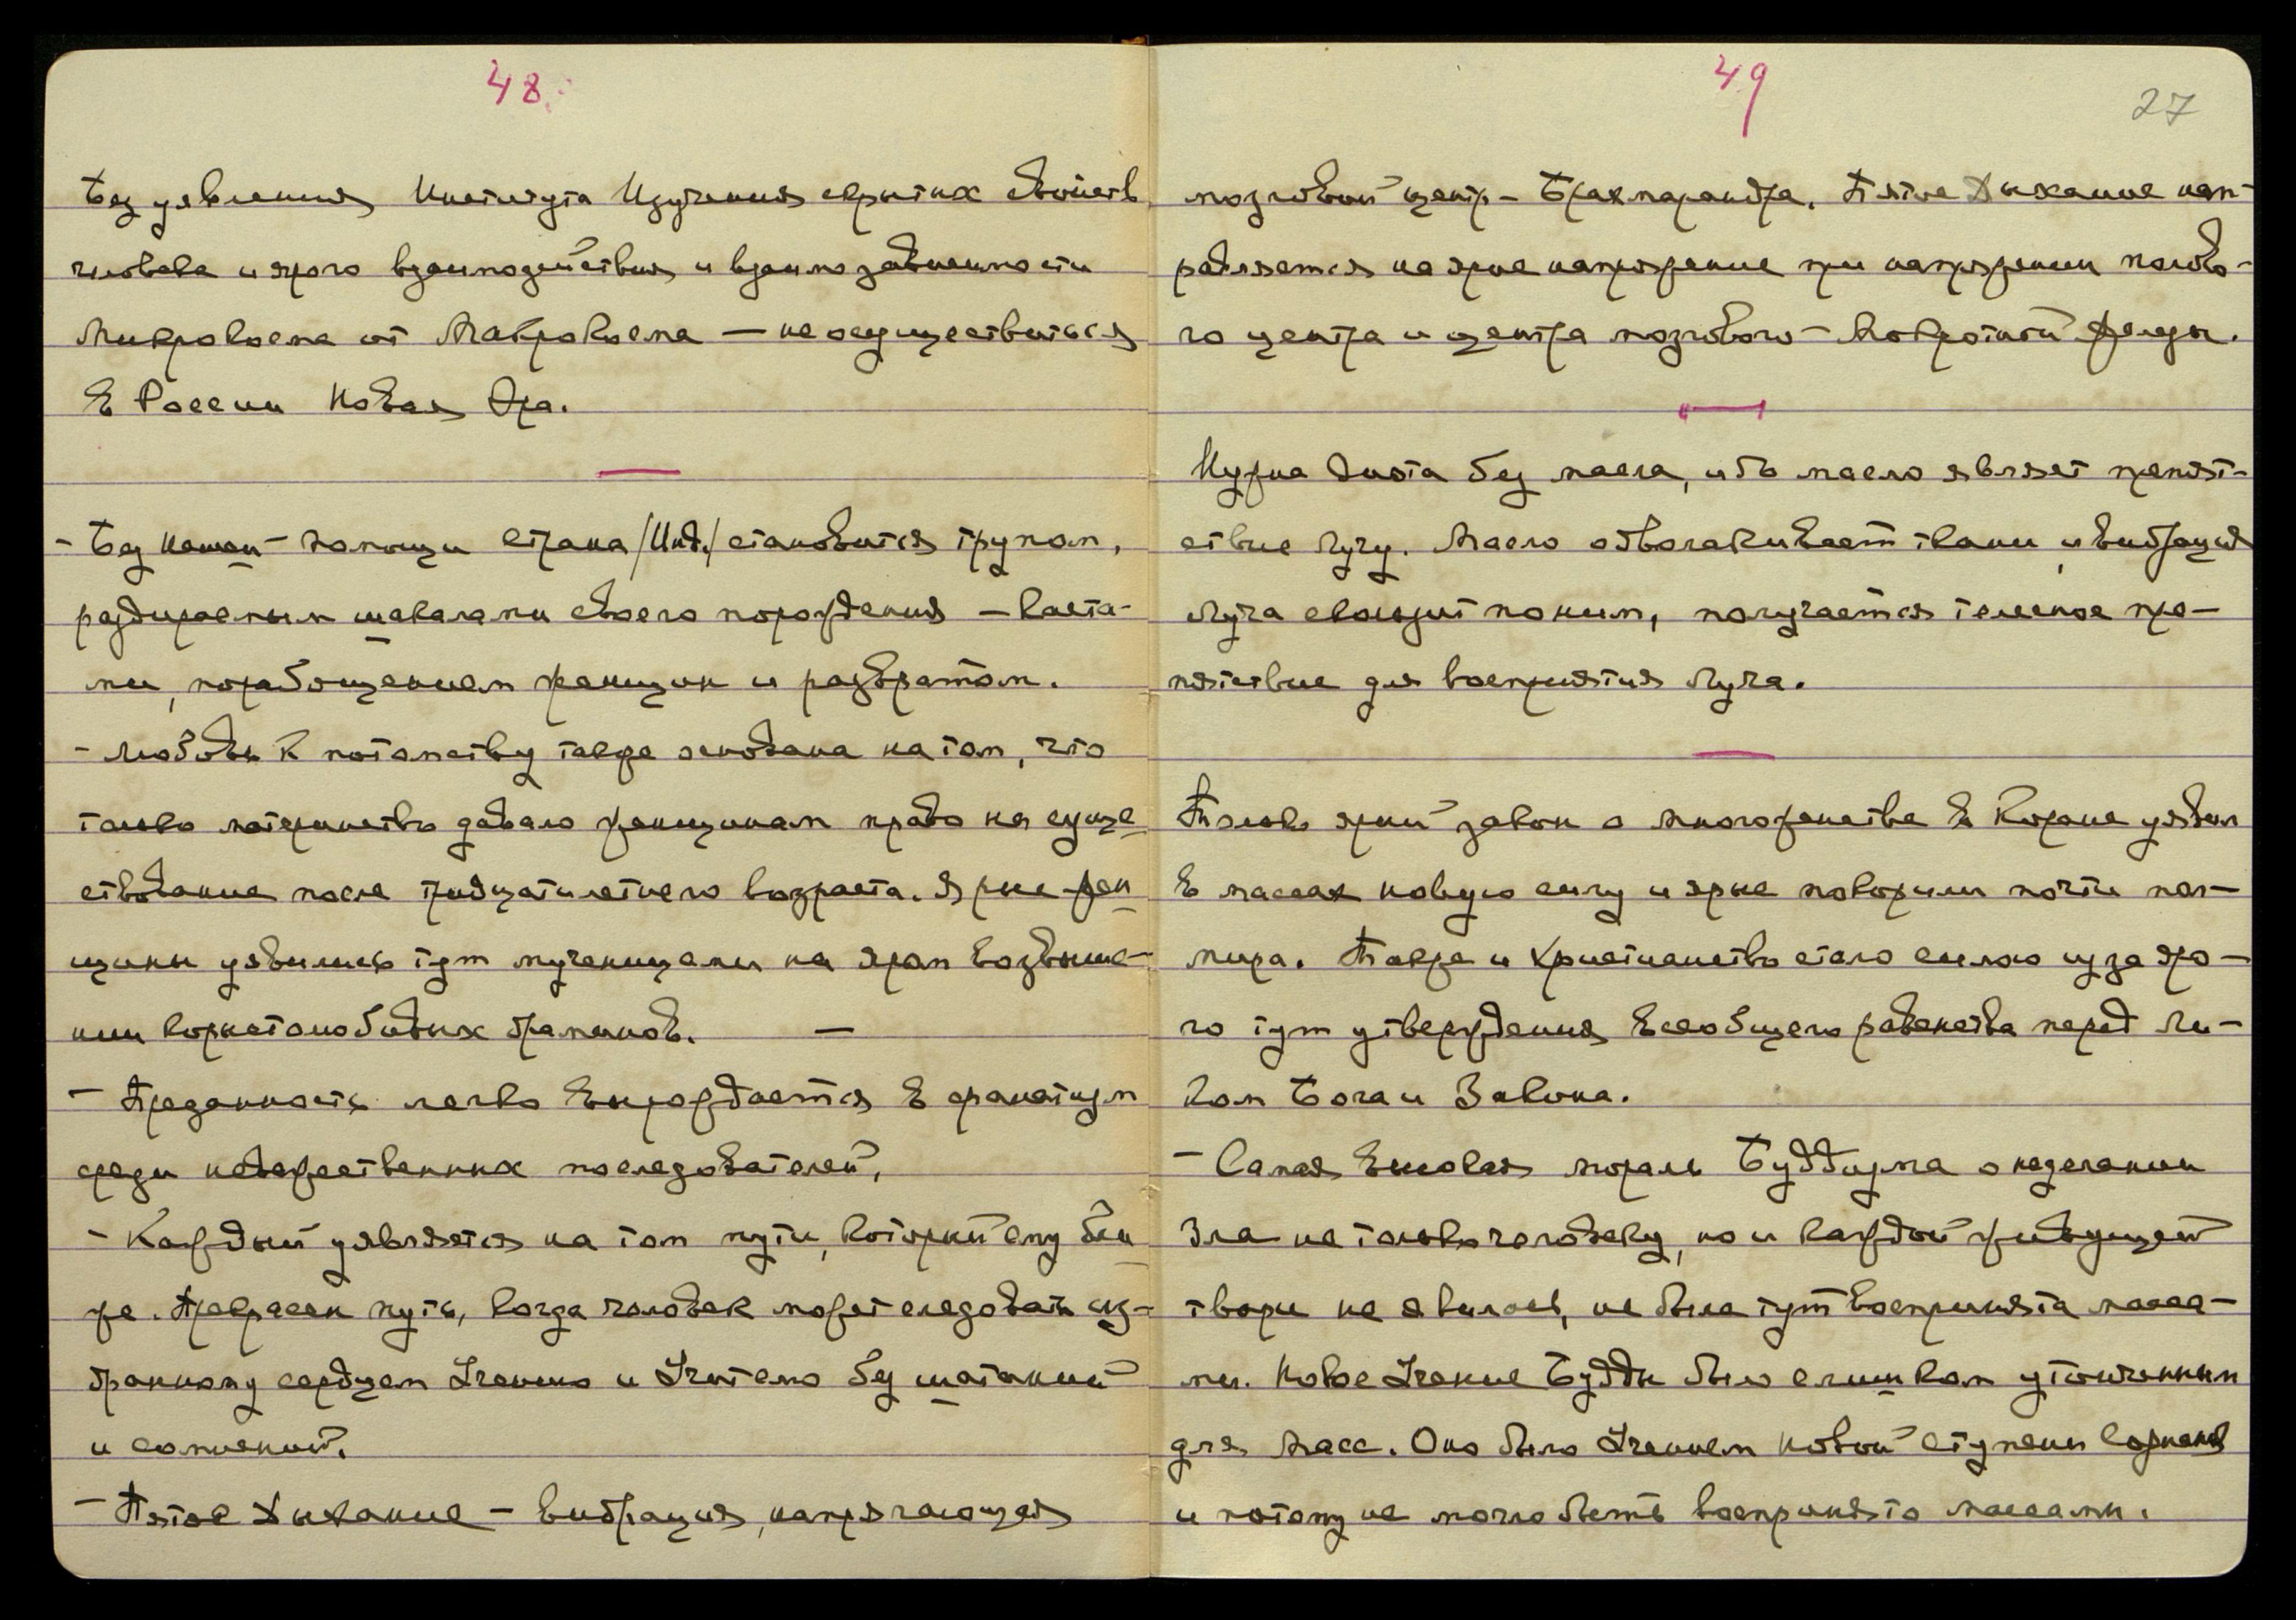 48.
Без явления Института Изучения скрытых свойств
человека и ярого взаимодействия и взаимозависимости
Микрокосма от Макрокосма — не осуществиться
в России Новая Эра.
- Без нашей помощи страна /Инд./ становится трупом,
раздираемым шакалами своего порождения — каста-
ми, порабощением женщин и развратом.
- Любовь к потомству также основана на том, что
только материнство давало женщинам право на суще-
ствование после тридцатилетнего возраста. Ярые жен-
щины явились тут мученицами на яром возвыше-
нии корыстолюбивых браминов. —
- Преданность легко вырождается в фанатизм
среди невежественных последователей.
- Каждый уявляется на том пути, который ему бли-
же. Прекрасен путь, когда человек может следовать из-
бранному сердцем Учению и Учителю без шатаний
и сомнений.
- Пятое Дыхание — вибрация, напрягающая
49
27
мозговой центр - Брахмарандра. Пятое Дыхание нап-
равляется на ярое напряжение при напряжении полово-
го центра и центра мозгового - Мокротной железы.
Нужна диета без масла, ибо масло являет препят-
ствие Лучу. Масло обволакивает ткани, и вибрация
Луча скользит по ним, получается телесное пре-
пятствие для восприятия Луча.
Только ярый закон о многоженстве в Коране уявил
в массах новую силу и ярые покорили почти пол-
мира. Также и Христианство стало силою из за яро-
го тут утверждения всеобщего равенства перед Ли-
ком Бога и Закона.
- Самая высокая мораль Буддизма о неделании
Зла не только человеку, но и каждой живущей
твари не явилась, не была тут воспринята масса-
ми. Новое Учение Будды было слишком утонченным
для масс. Оно было Учением новой ступени сознания
и потому не могло быть воспринято массами.